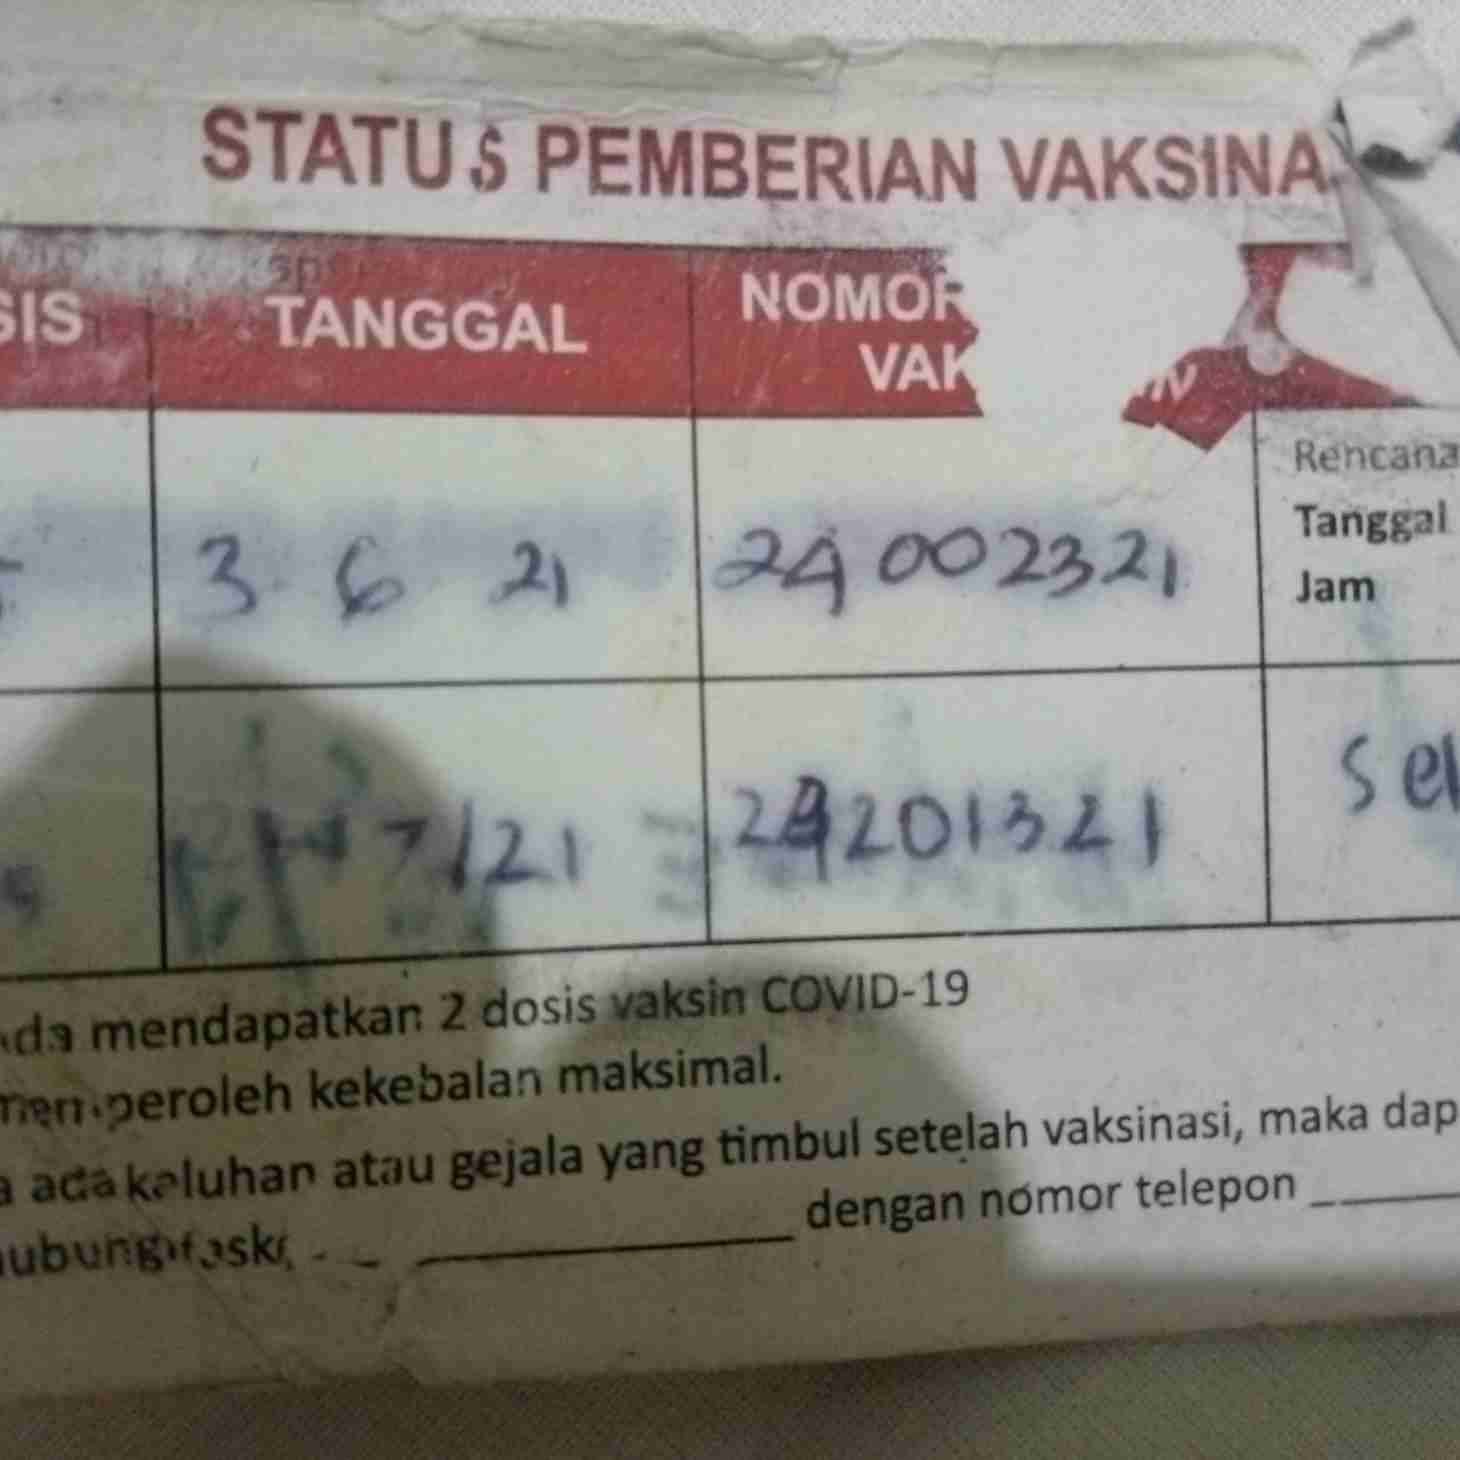 STATUS PEMBERIAN VAKSINA
SIS TANGGAL NOMOR
VAK
Rencana
Tanggal
Jam
3 6 21 24002321
7/21 24201321 Sel
da mendapatkan 2 dosis vaksin COVID-19
memperoleh kekebalan maksimal.
a ada keluhan atau gejala yang timbul setelah vaksinasi, maka dap
ubungi dengan nomor telepon